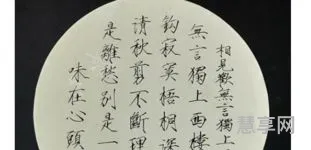 相見歡無言獨上
無言獨上西樓
鈎寂寞梧桐深
清秋剪不斷理
是離愁別是一
味在心頭
慧享网